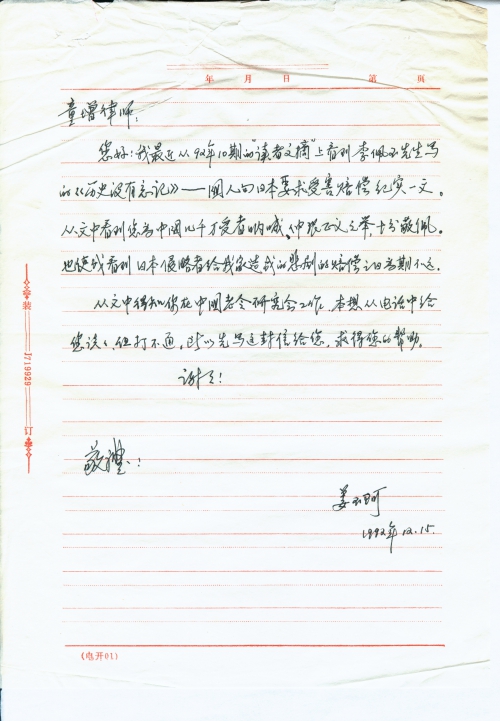 年 月 日 第 页
童增律师:
您好!我最近从92年10期的"读者文摘"上看到李佩玉先生写
的《历史没有忘记》——国人向日本要求受害赔偿纪实一文。
从文中看到您为中国几千万受害者呐喊、伸张正义之举,十分敬佩。
也使我看到日本侵略者给我家造成的悲剧的赔偿之日为期不远。
从文中得知您在中国老令研究会工作,本想从电话中给
您谈谈,但打不通,所以先写这封信给您,求得您的帮助。
谢了!
敬礼!
姜
1992年12.15.
装
J719929
订
(电开01)